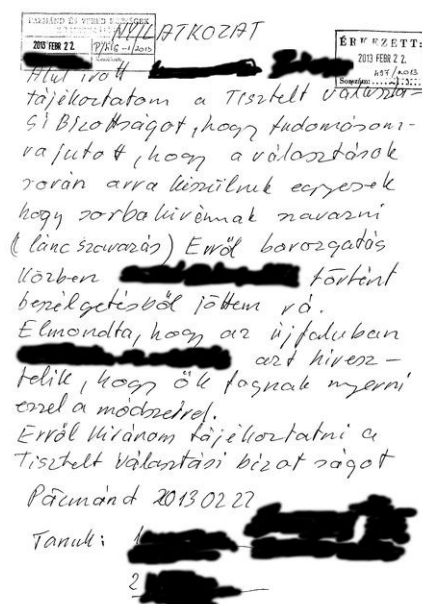 NYILATKOZAT
PÁZMÁND ÉS VEREB KÖZSÉGEK
2013 FEBR 22.
ÉRKEZETT:
2013 FEBR 22.
497/2013
Alulírott
tájékoztatom a Tisztelt Választá-
si Bizottságot, hogy tudomásom-
ra jutott, hogy a választások
során arra készülnek egyesek
hogy sorba kivánnak szavazni
(láncszavazás) Erről borozgatás
közben történt
beszélgetésből jöttem rá.
Elmondta, hogy az újfaluban
azt hiresz-
telik, hogy ők fognak nyerni
ezzel a módszerrel.
Erről kivánom tájékoztatni a
Tisztelt Választási bizatságot
Pázmánd 2013 02 22
Tanuk: 1
2